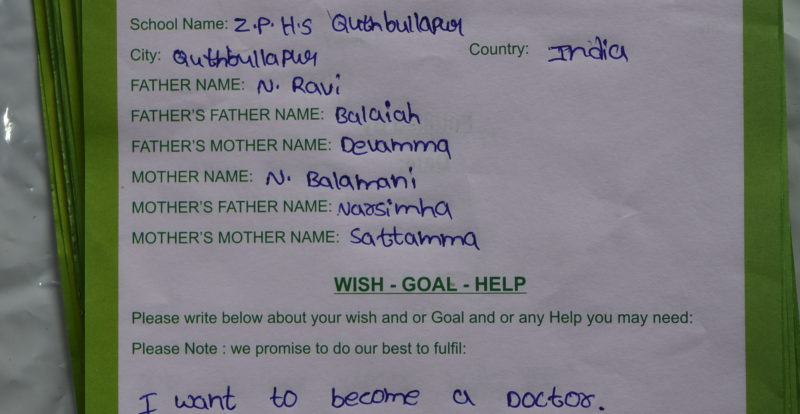 School Name: Z.P.H.S Quthbullapur
City: Quthbullapur Country: India
FATHER NAME: N. Ravi
FATHER'S FATHER NAME: Balaiah
FATHER'S MOTHER NAME: Devamma
MOTHER NAME: N. Balamani
MOTHER'S FATHER NAME: Narsimha
MOTHER'S MOTHER NAME: Sattamma
WISH - GOAL - HELP
Please write below about your wish and or Goal and or any Help you may need:
Please Note : we promise to do our best to fulfil:
I want to become a Doctor.